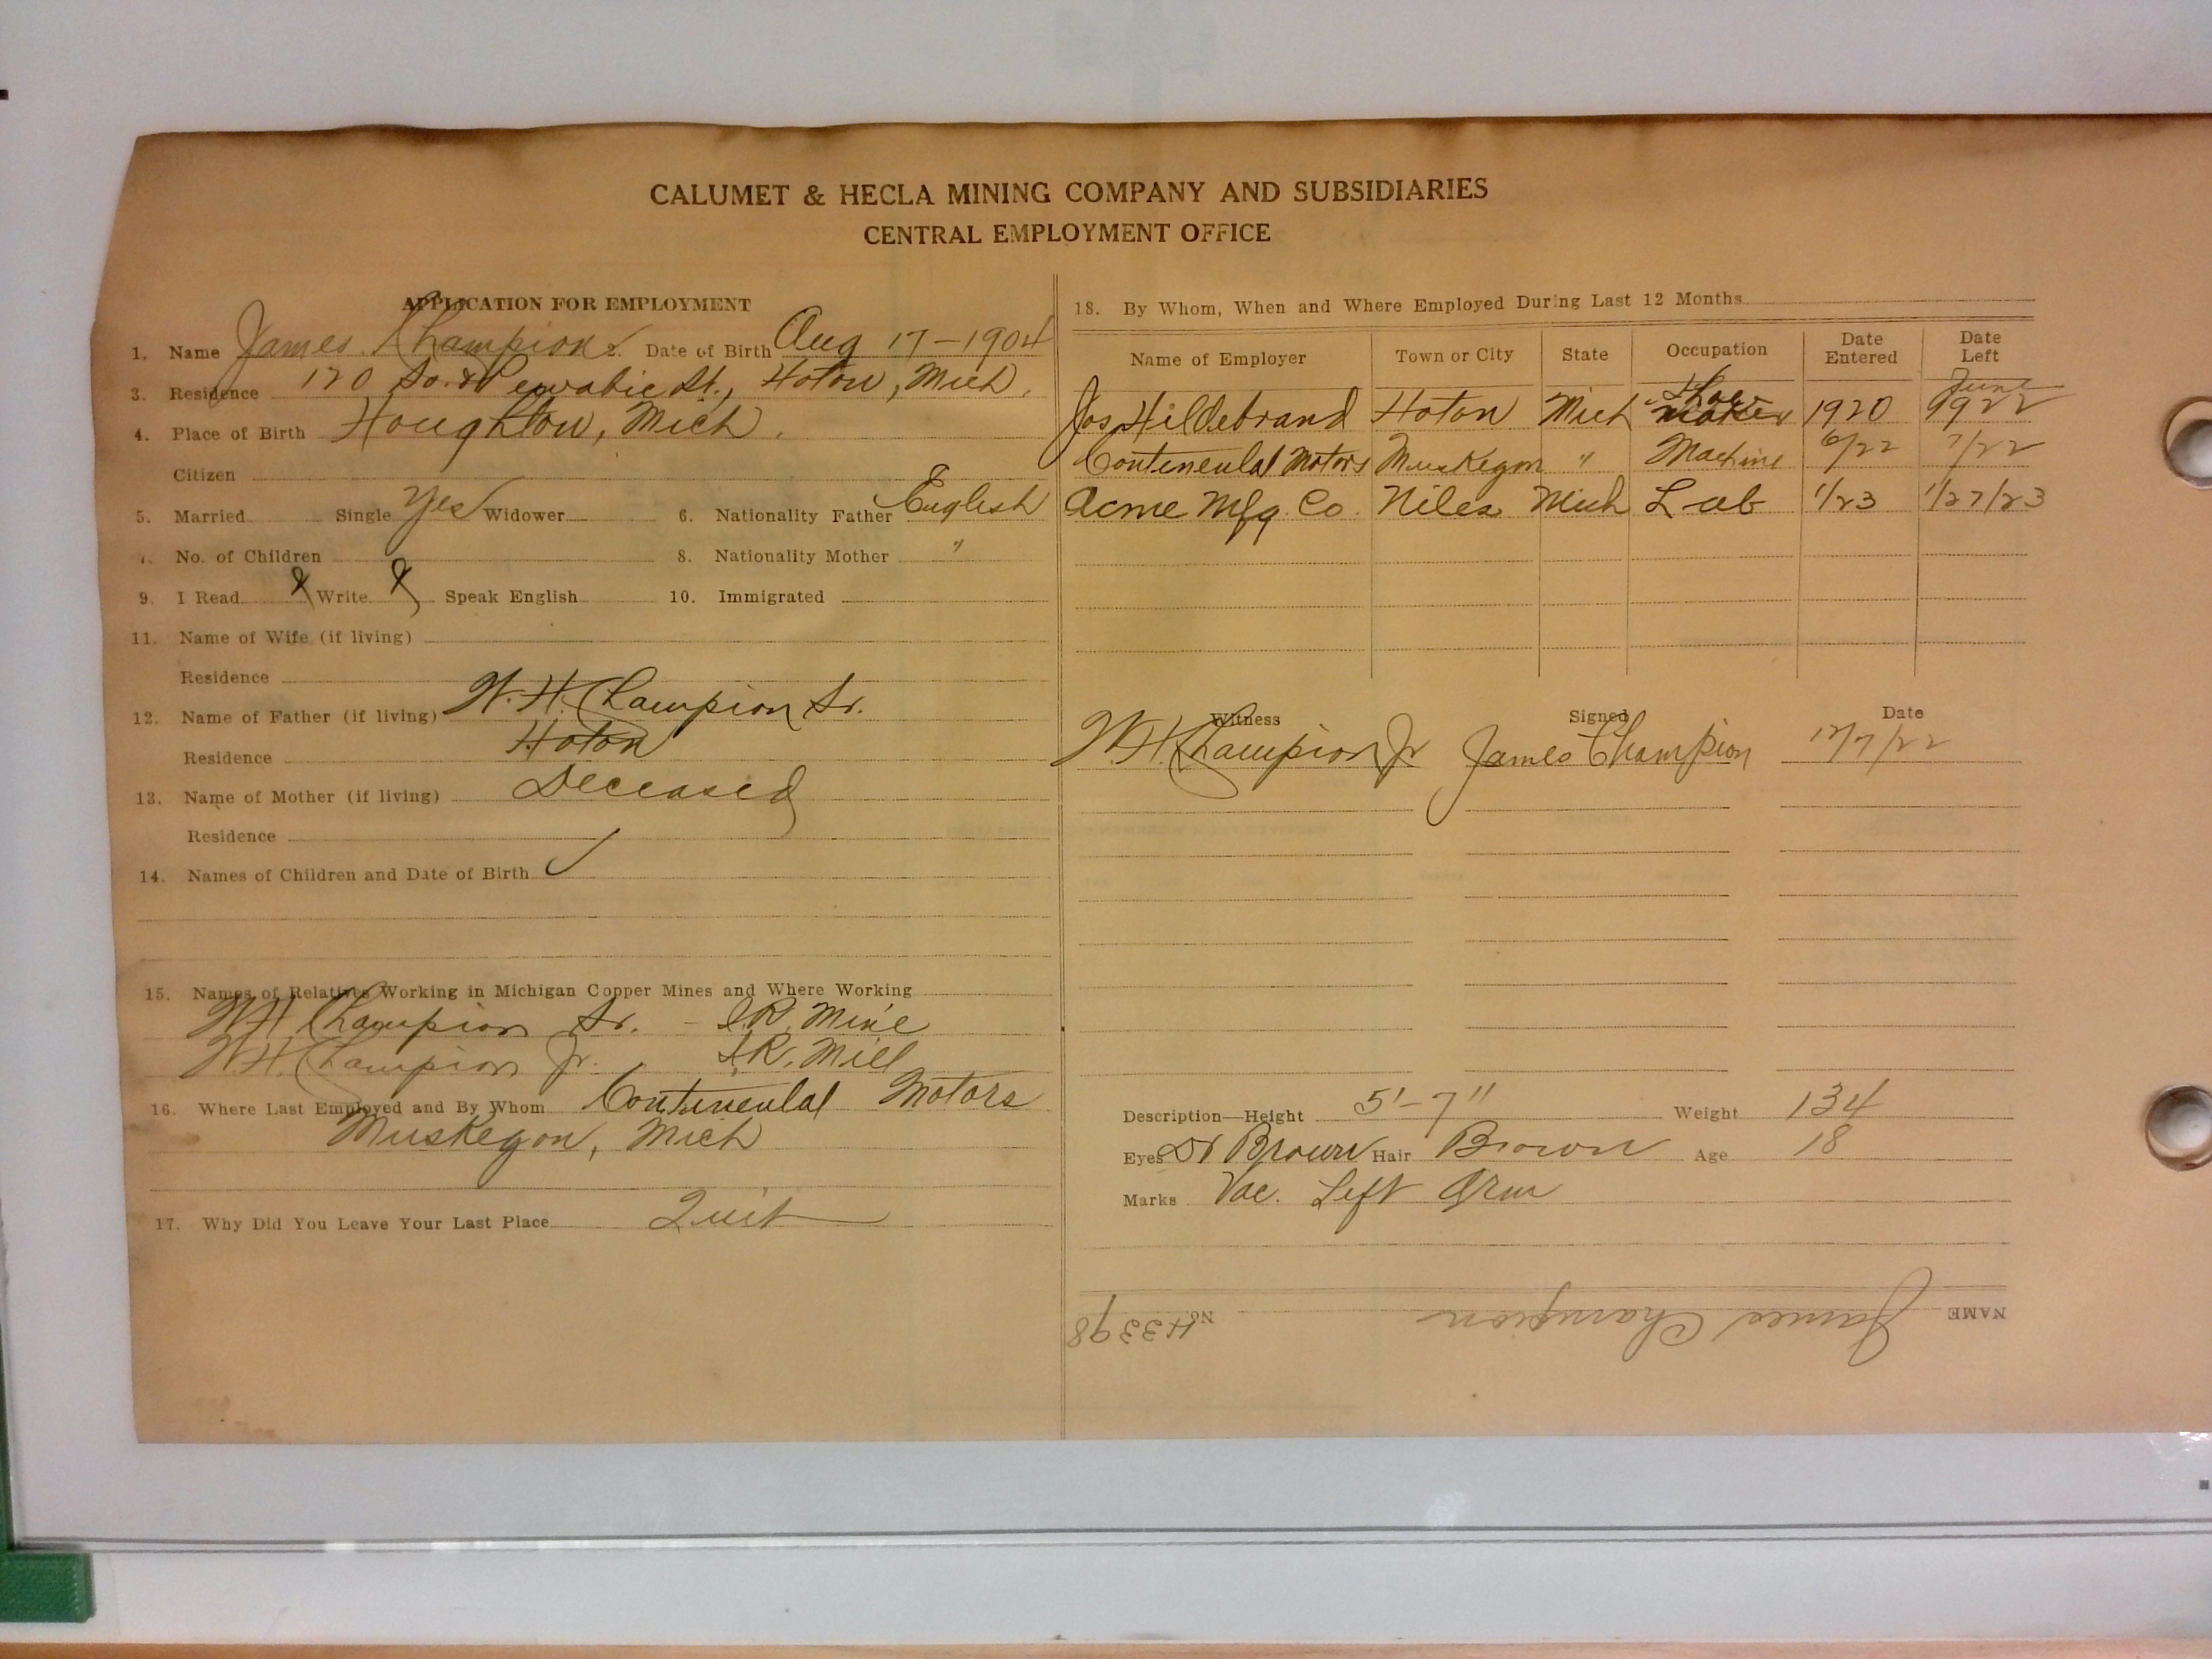 CALUMET & HECLA MINING COMPANY AND SUBSIDIARIES
CENTRAL EMPLOYMENT OFFICE
APPLICATION FOR EMPLOYMENT
1. Name James Champion 2. Date of Birth Aug 17-1904
3. Residence 120 So. Pewabic St., Hoton, Mich.
4. Place of Birth Houghton, Mich.
Citizen
5. Married Single Yes Widower 6. Nationality Father English
7. No. of Children 8. Nationality Mother "
9. I Read X Write X Speak English 10. Immigrated
11. Name of Wife (if living)
Residence
12. Name of Father (if living) W. H. Champion Sr.
Residence Hoton
13. Name of Mother (if living) Deceased
Residence
14. Names of Children and Date of Birth
15. Names of Relatives Working in Michigan Copper Mines and Where Working
W H Champion Sr. - I.R. Mine
W. H. Champion Jr. I.R. Mill
16. Where Last Employed and By Whom Continental Motors
Muskegon, Mich
17. Why Did You Leave Your Last Place Quit
18. By Whom, When and Where Employed During Last 12 Months
Name of Employer Town or City State Occupation Date Entered Date Left
Jos Hildebrand Hoton Mich Shoe maker 1920 June 1922
Continental Motors Muskegon " Machine 6/22 7/22
Acme Mfg. Co. Niles Mich Lab 1/23 1/27/23
Witness Signed Date
W. H. Champion Jr James Champion 12/7/22
Description—Height 5'-7" Weight 134
Eyes Brown Hair Brown Age 18
Marks Vac. Left Arm
NAME James Champion No. 43398